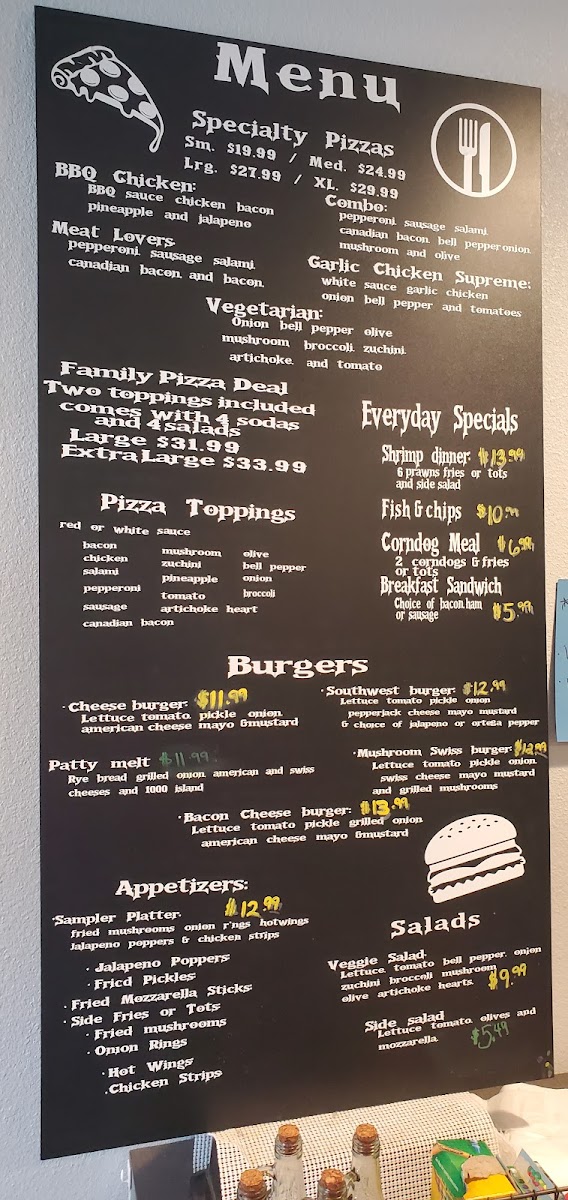 Menu
Specialty Pizzas
Sm. $19.99 / Med. $24.99
Lrg. $27.99 / XL. $29.99
BBQ Chicken:
BBQ sauce chicken bacon
pineapple and jalapeno
Combo:
pepperoni, sausage salami,
canadian bacon, bell pepper onion,
mushroom and olive
Meat Lovers
pepperoni, sausage, salami,
canadian bacon, and bacon,
Garlic Chicken Supreme:
white sauce garlic chicken
onion bell pepper and tomatoes
Vegetarian:
Onion bell pepper olive
mushroom broccoli, zuchini,
artichoke, and tomato
Family Pizza Deal
Two toppings included
comes with 4 sodas
and 4 salads
Large $31.99
Extra Large $33.99
Everyday Specials
Shrimp dinner: $13.99
6 prawns fries or tots
and side salad
Fish & chips $10.99
Corndog Meal $6.99
2 corndogs & fries
or tots
Breakfast Sandwich
Choice of bacon, ham
or sausage $5.99
Pizza Toppings
red or white sauce
bacon
chicken
salami
pepperoni
sausage
canadian bacon
mushroom
zuchini
pineapple
tomato
artichoke heart
olive
bell pepper
onion
broccoli
Burgers
· Cheese burger: $11.99
Lettuce tomato, pickle onion,
american cheese mayo &mustard
· Southwest burger: $12.99
Lettuce tomato pickle onion
pepperjack cheese mayo mustard
& choice of jalapeno or ortega pepper
Patty melt $11.99
Rye bread grilled onion, american and swiss
cheeses and 1000 island
· Mushroom Swiss burger $12.99
Lettuce tomato pickle onion,
swiss cheese mayo mustard
and grilled mushrooms
· Bacon Cheese burger: $13.99
Lettuce tomato pickle grilled onion
american cheese mayo &mustard
Appetizers:
· Sampler Platter: $12.99
fried mushrooms onion r'ngs hotwings
Jalapeno poppers & chicken strips
· Jalapeno Poppers
· Fried Pickles
· Fried Mozzarella Sticks
· Side Fries or Tots
· Fried mushrooms
· Onion Rings
· Hot Wings
· Chicken Strips
Salads
Veggie Salad:
Lettuce, tomato, bell pepper, onion
zuchini broccoli mushroom
olive artichoke hearts $9.99
Side salad
Lettuce tomato, olives and
mozzarella $5.49